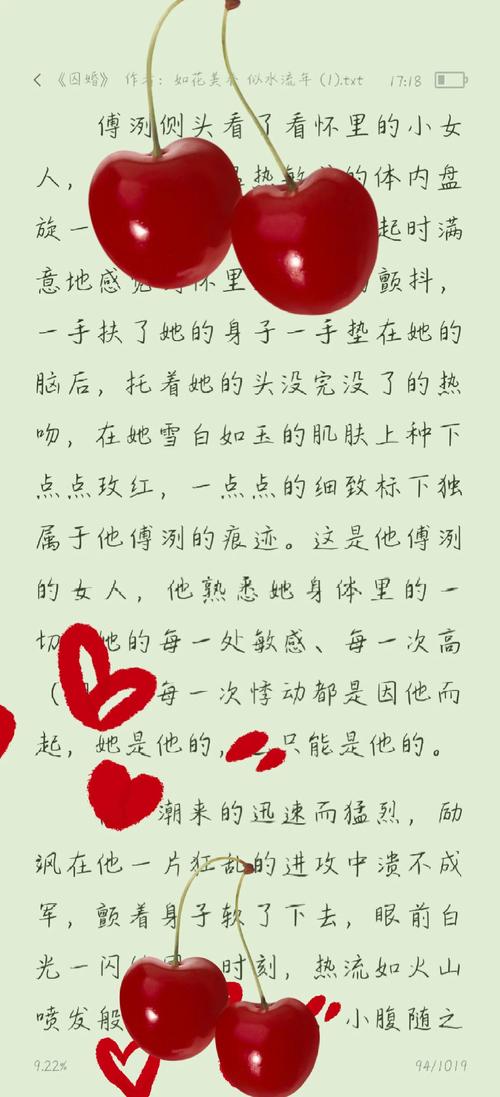 《囚婚》 作者：如花美 似水流年 (1).txt 17:18
傅洌侧头看了看怀里的小女
人， 热敏 的体内盘
旋一 起时满
意地感觉 怀里 颤抖，
一手扶了她的身子一手垫在她的
脑后，托着她的头没完没了的热
吻，在她雪白如玉的肌肤上种下
点点玫红，一点点的细致标下独
属于他傅洌的痕迹。这是他傅洌
的女人，他熟悉她身体里的一
切 她的每一处敏感、每一次高
（ 每一次悸动都是因他而
起，她是他的， 只能是他的。
潮来的迅速而猛烈，励
飒在他一片狂乱的进攻中溃不成
军，颤着身子软了下去，眼前白
光一闪 时刻，热流如火山
喷发般 小腹随之
9.22% 94/1019